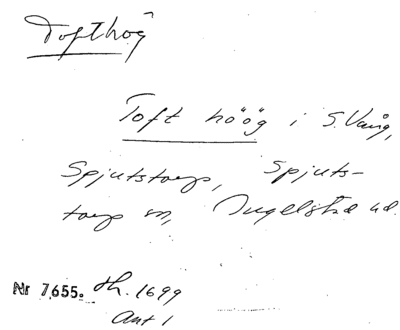 Tofthög
Toft höög i S. Vång,
Spjutstorp, Spjuts-
torp sn, Ingelstad hd.
Nr 7655. th. 1699
Akt 1